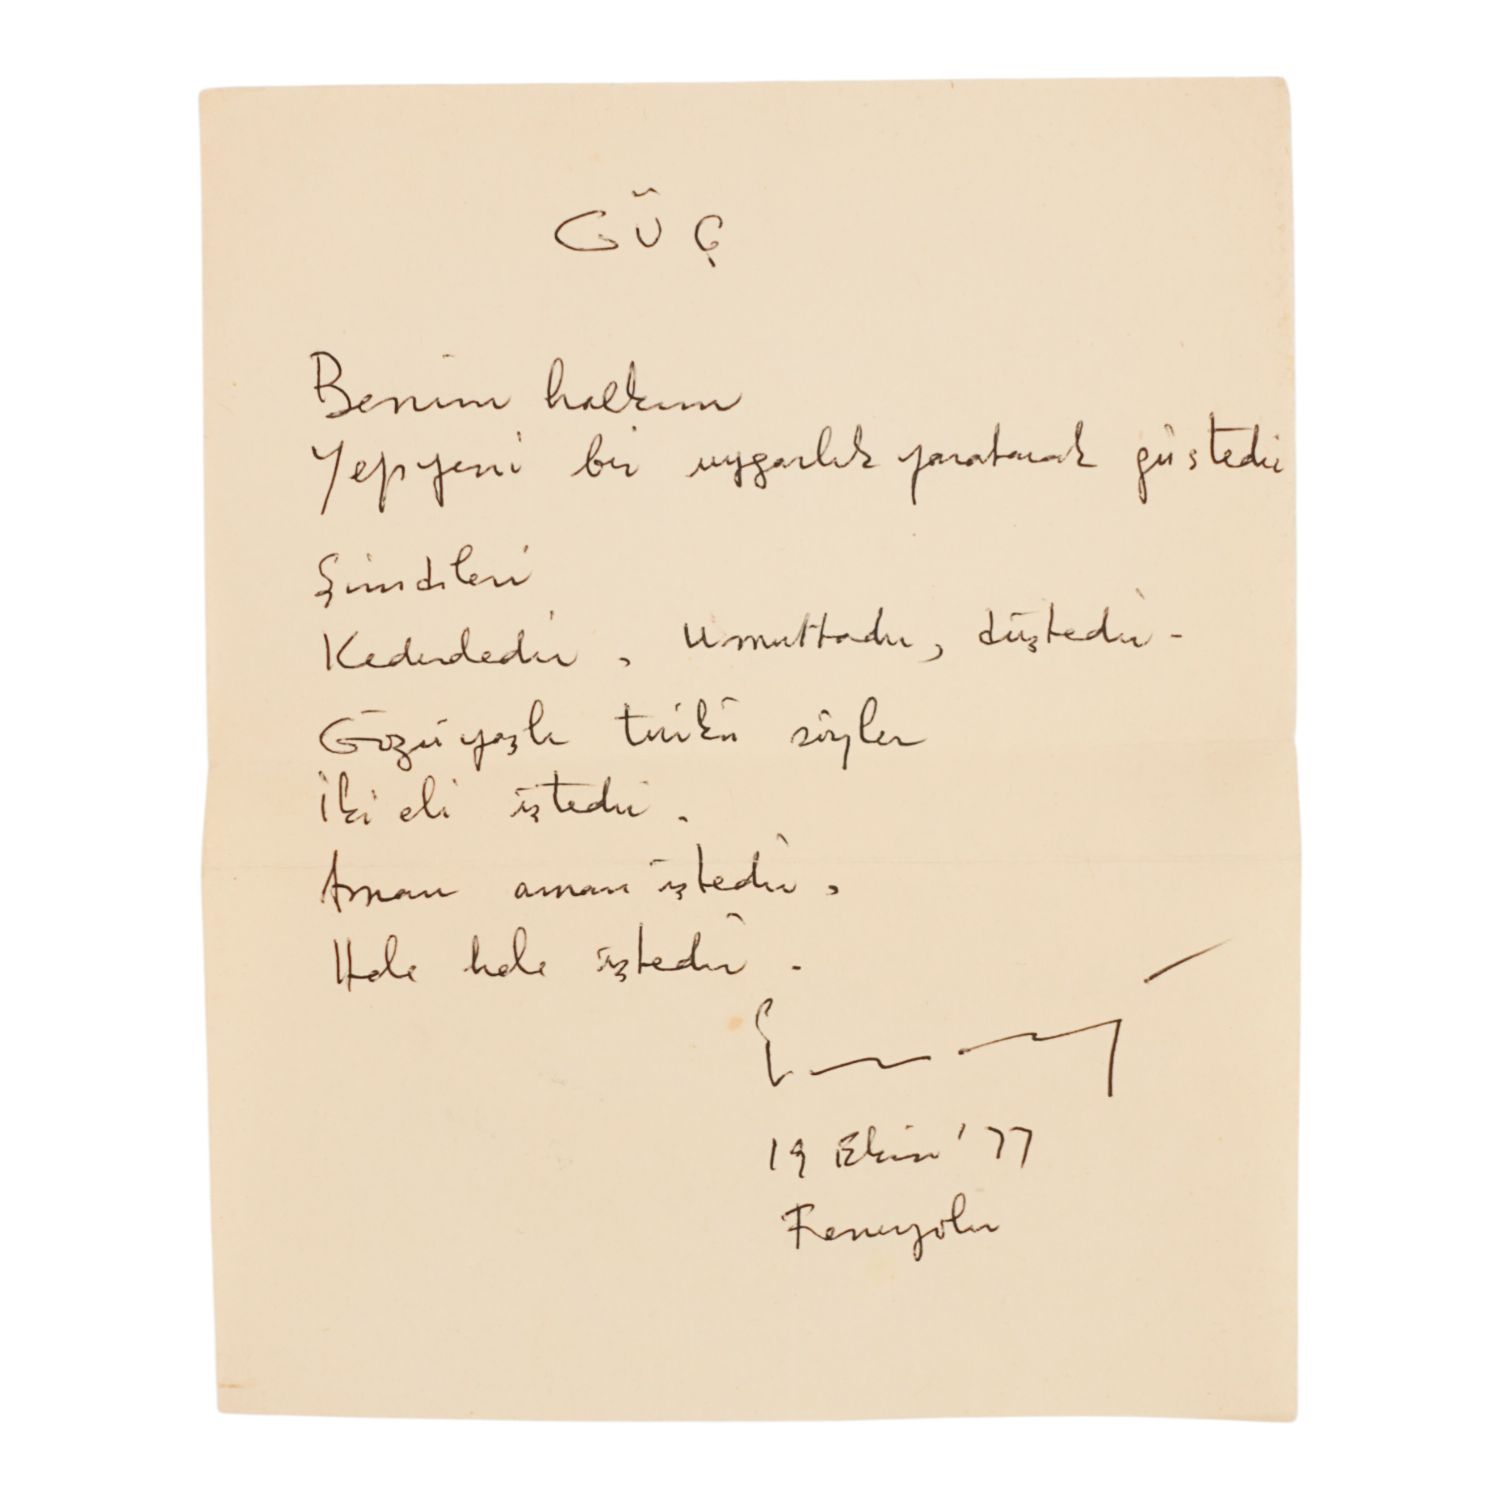 GÜÇ
Benim halkım
Yepyeni bir uygarlık yaratacak güçtedir
Şimdileri
Kederdedir, umuttadır, düştedir.
Gözüyaşlı türkü söyler
İki eli iştedir.
Aman aman iştedir,
Hele hele iştedir.
19 Ekin '77
Feneryolu